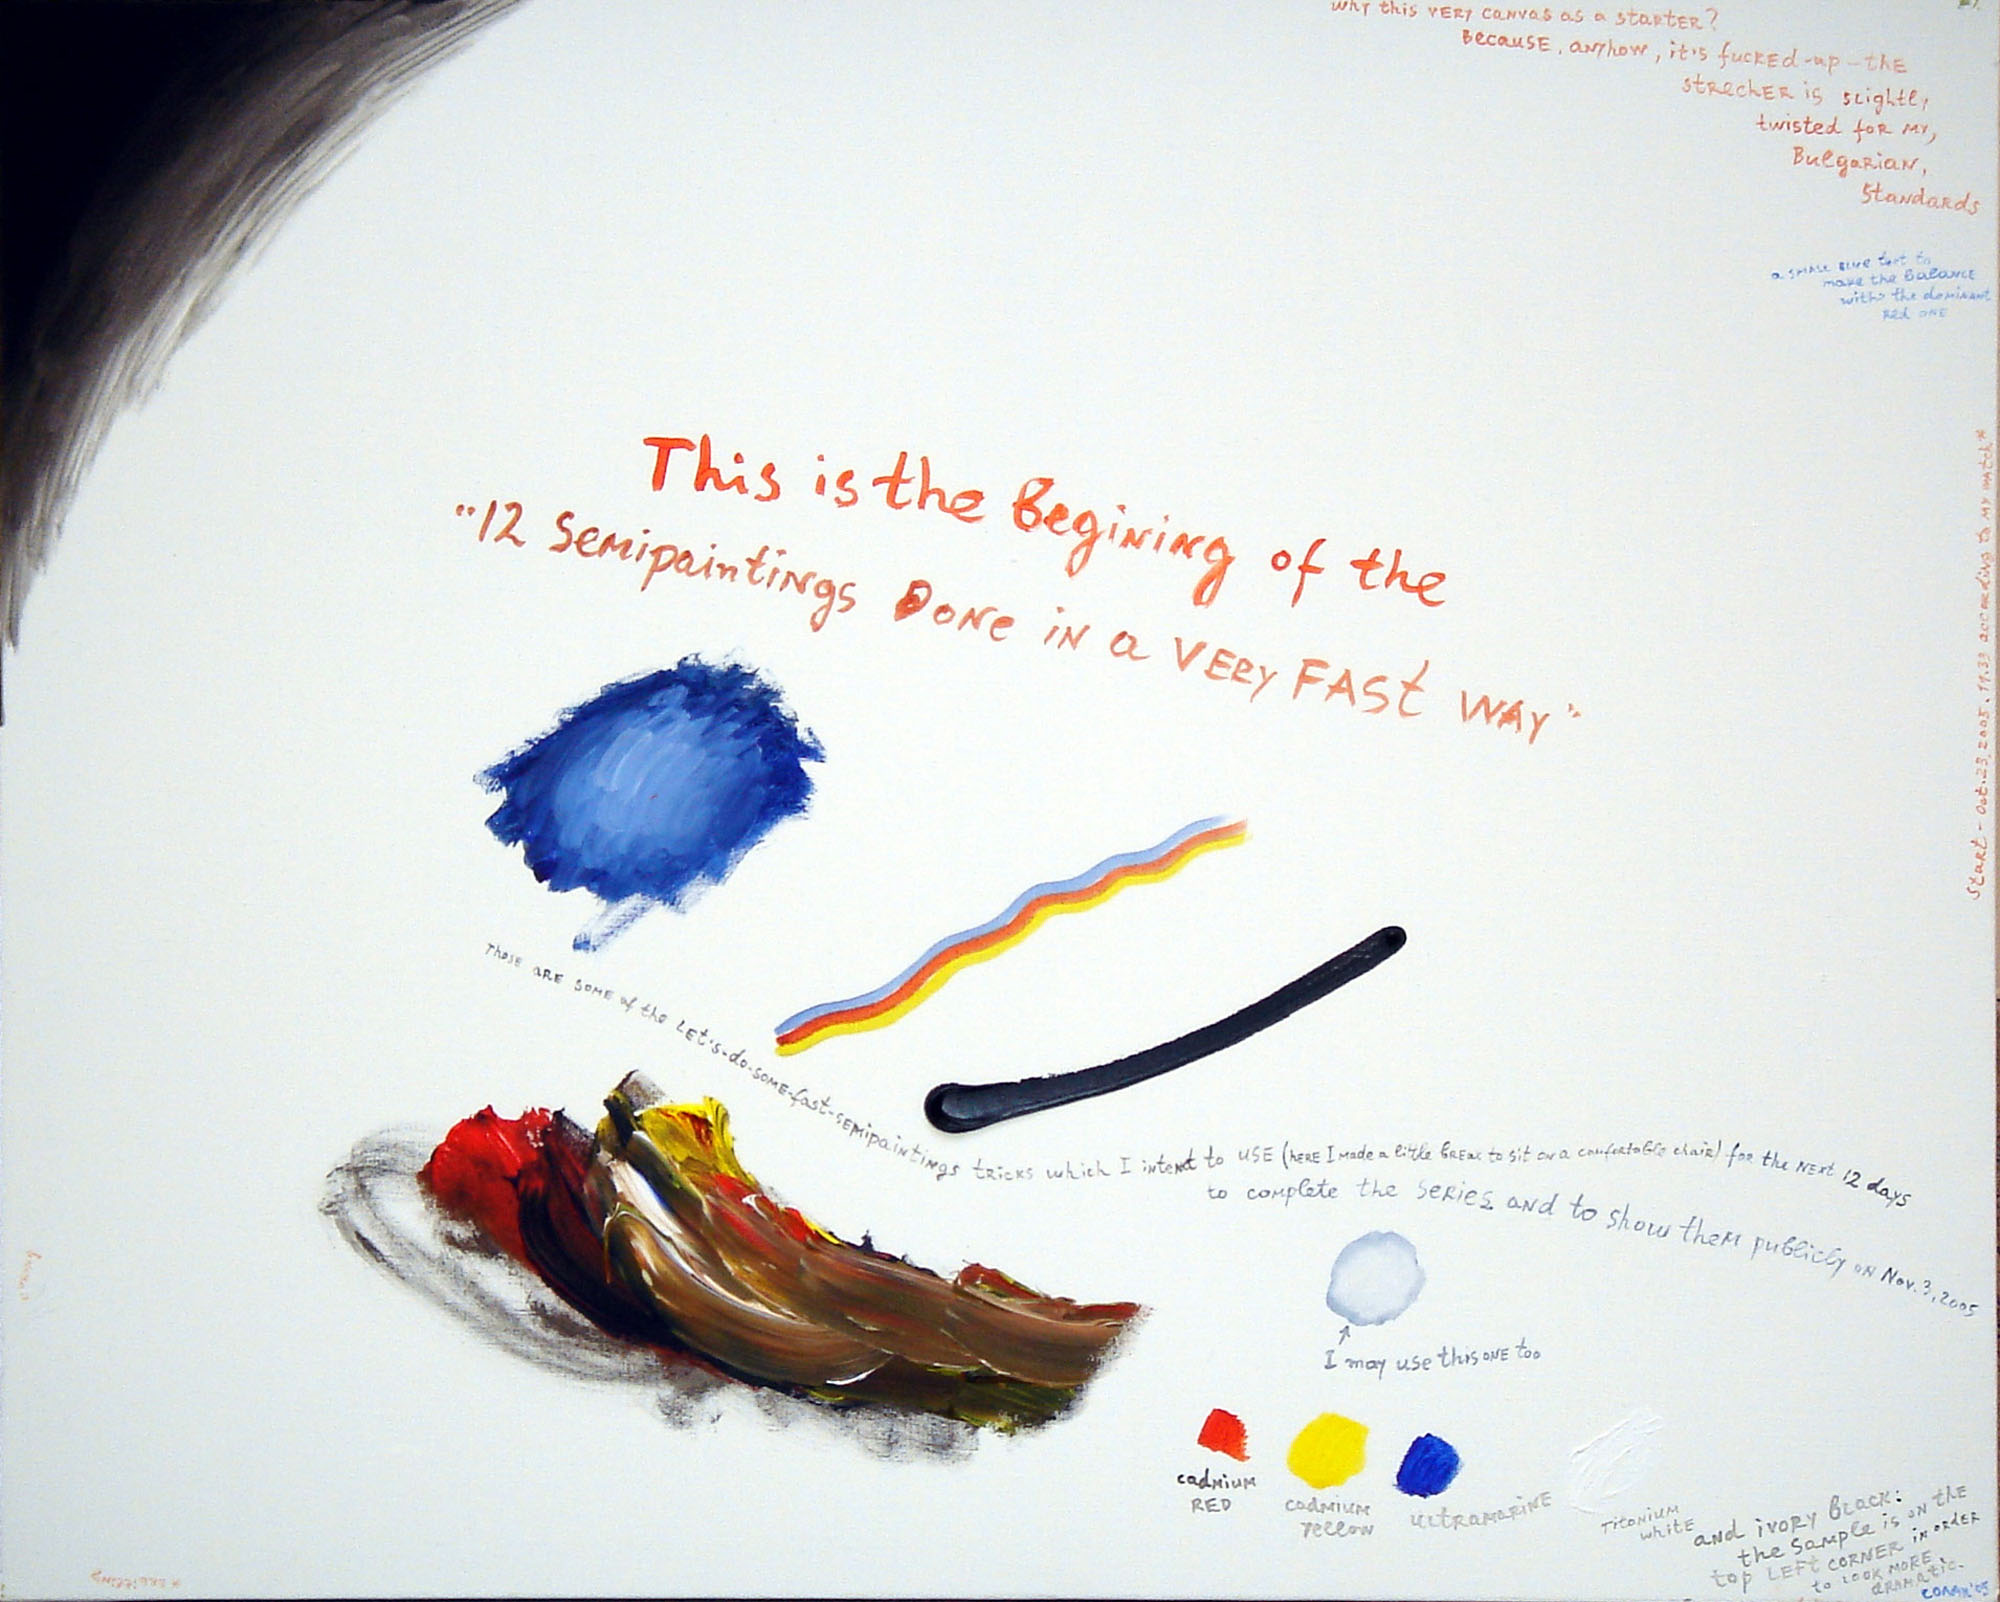 why this very canvas as a starter?
Because, anyhow, it's fucked-up - the
strecher is slightly
twisted for my,
Bulgarian,
standards
a small blue text to
make the balance
with the dominant
red one
Start - Oct. 23, 2005. 11.39 according to my watch*
This is the Begining of the
"12 Semipaintings Done in a VERY FAST WAY"
Those are some of the Let's-do-some-fast-semipaintings tricks which I intent to use (here I made a little break to sit on a comfortable chair) for the next 12 days
to complete the series and to show them publicly on Nov. 3, 2005
I may use this one too
cadmium
RED
cadmium
yellow
ultramarine
Titanium
white
and ivory Black:
the sample is on the
top left corner in order
to look more
dramatic.